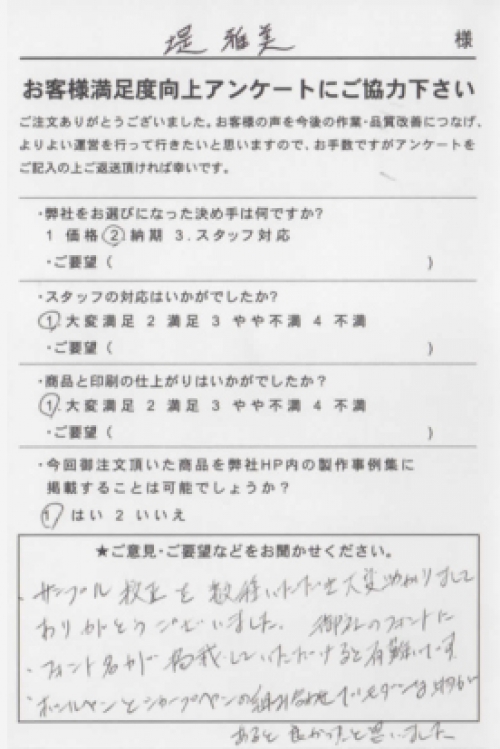 堤 雅美 様
お客様満足度向上アンケートにご協力下さい
ご注文ありがとうございました。お客様の声を今後の作業・品質改善につなげ、
よりよい運営を行って行きたいと思いますので、お手数ですがアンケートを
ご記入の上ご返送頂ければ幸いです。
・弊社をお選びになった決め手は何ですか?
1 価格 2.納期 3.スタッフ対応
・ご要望 ( )
・スタッフの対応はいかがでしたか?
1.大変満足 2 満足 3 やや不満 4 不満
・ご要望 ( )
・商品と印刷の仕上がりはいかがでしたか?
1.大変満足 2 満足 3 やや不満 4 不満
・ご要望 ( )
・今回御注文頂いた商品を弊社HP内の製作事例集に
掲載することは可能でしょうか?
1 はい 2 いいえ
★ご意見・ご要望などをお聞かせください。
・サンプル校正を数種いただき大変助かりまして
ありがとうございました。 御社のフォントに
・フォント名が掲載していただけると有難いです
・ボールペンとシャープペンの組み合わせで
あると良かったと思いました